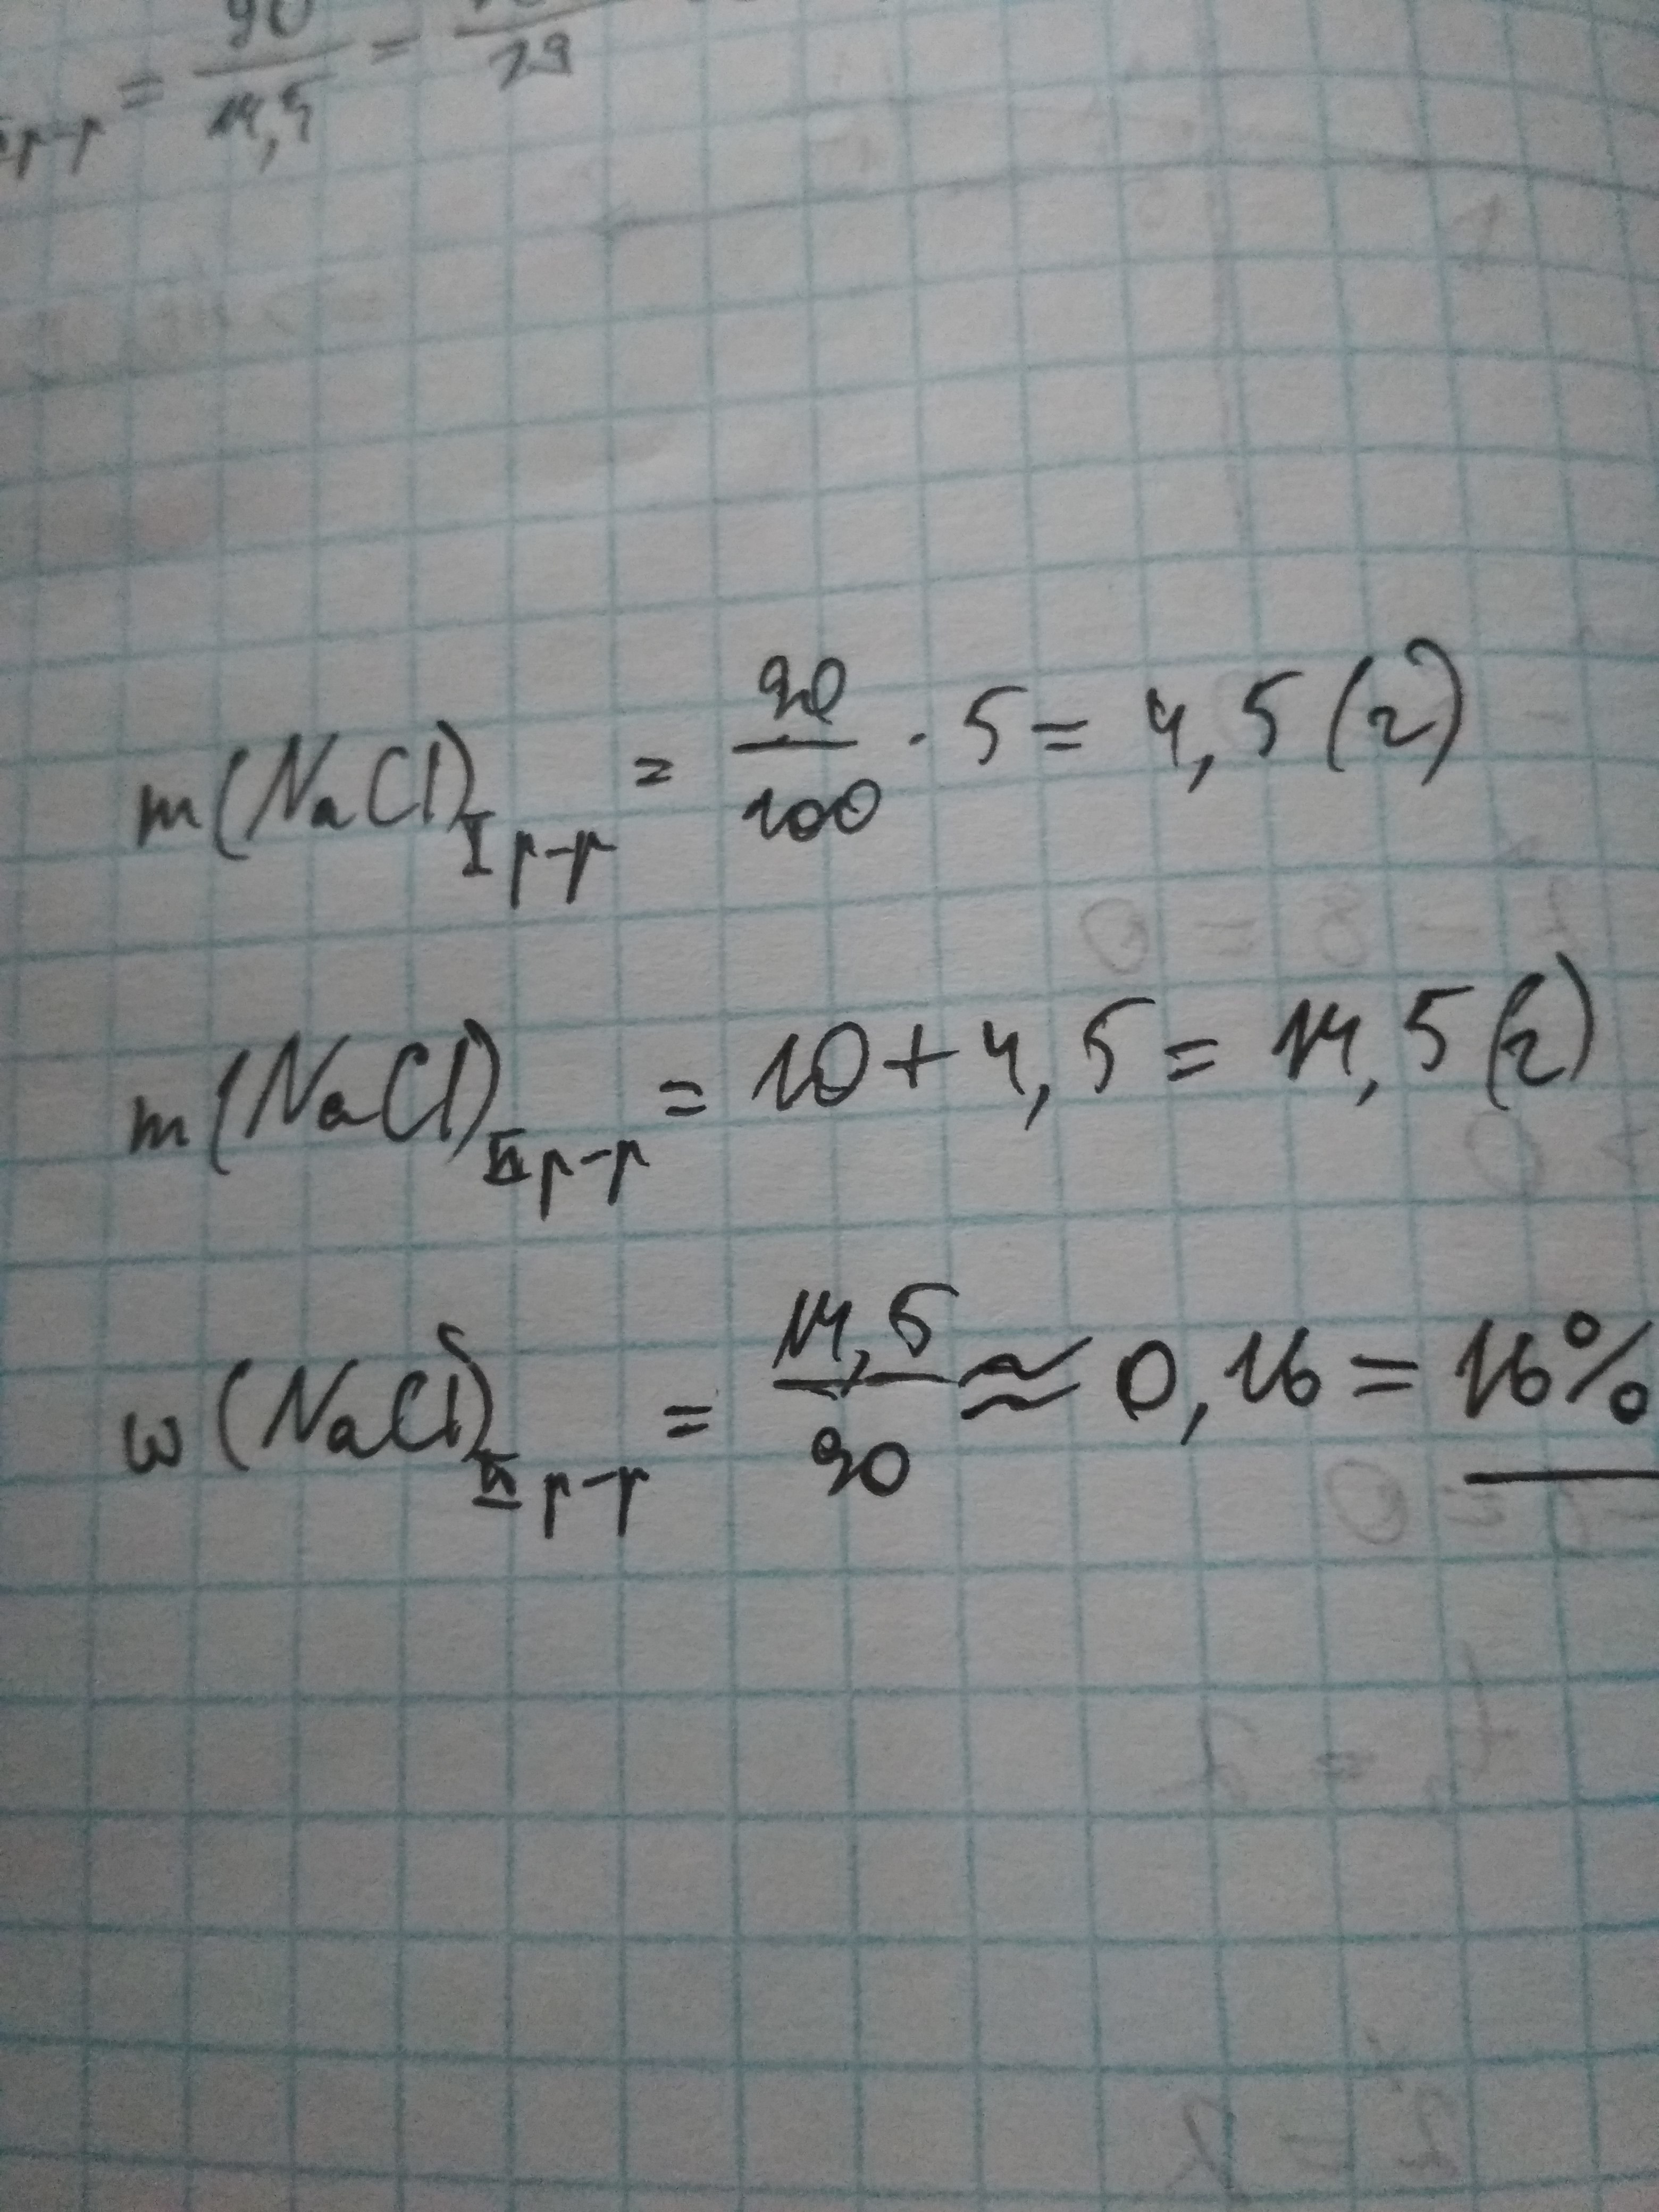 р-р = 90/14,5 = /29
m(NaCl) I р-р = 90/100 · 5 = 4,5 (г)
m(NaCl) II р-р = 10 + 4,5 = 14,5 (г)
ω(NaCl) II р-р = 14,5/90 ≈ 0,16 = 16%